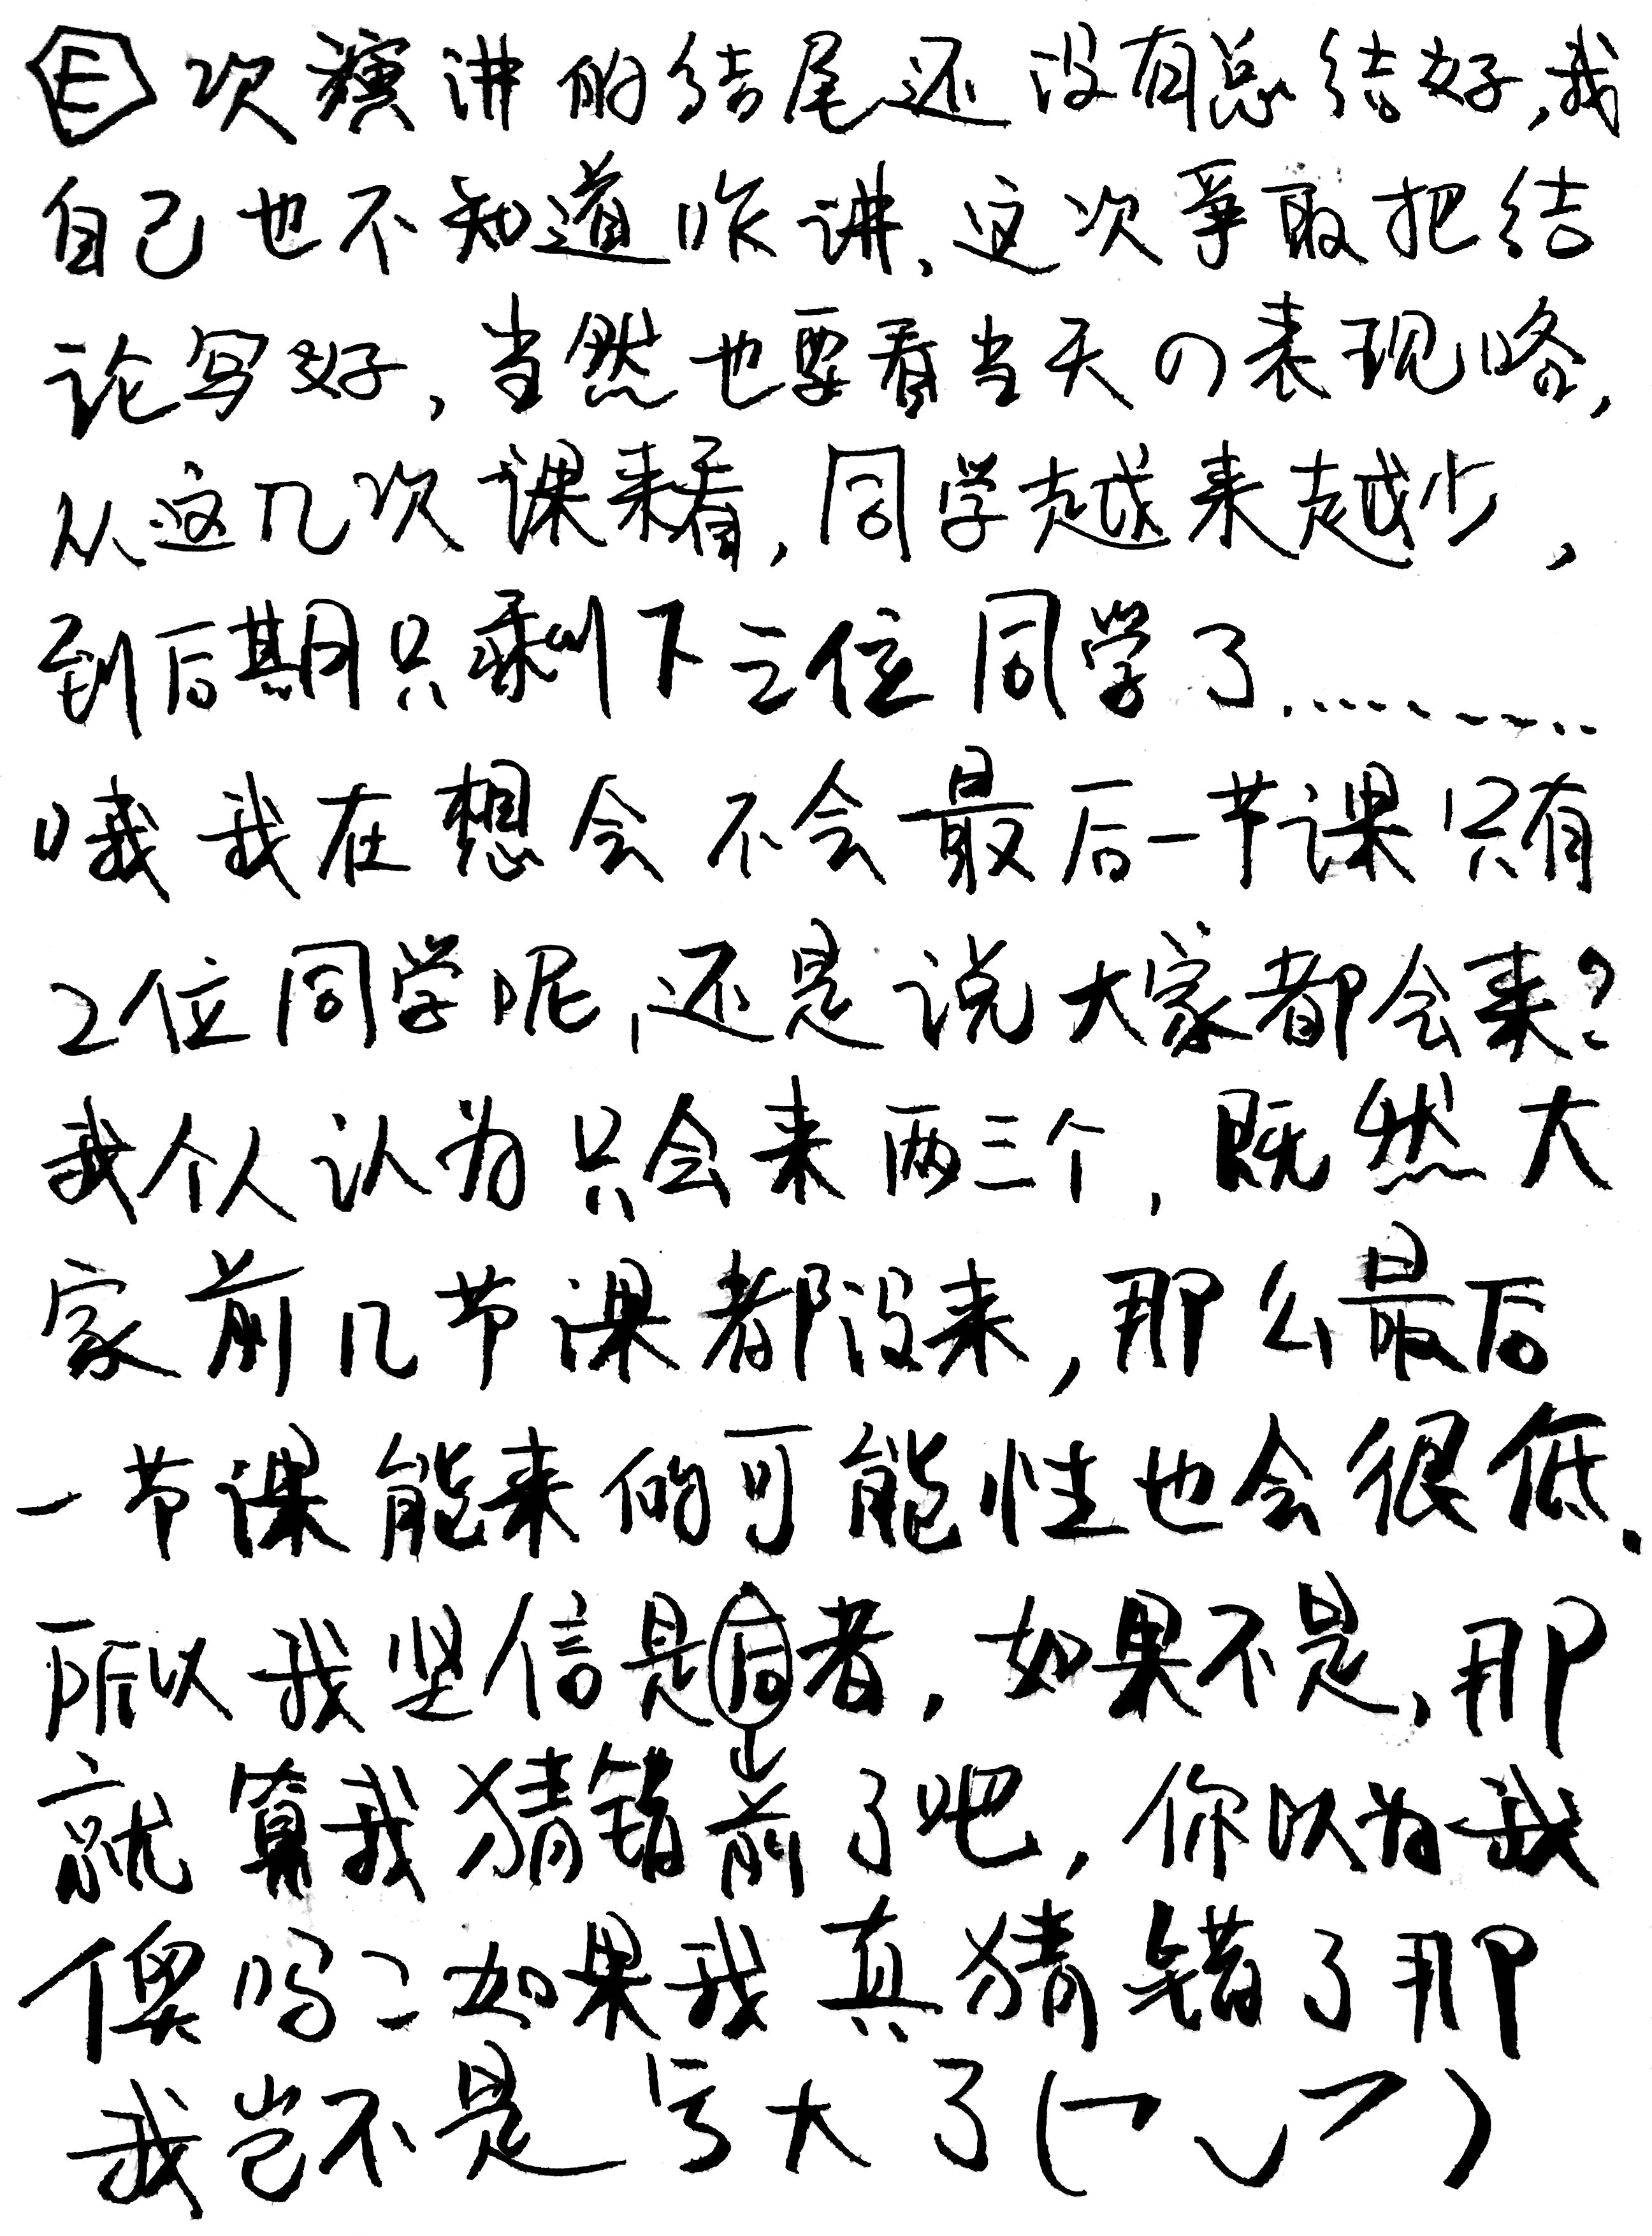 E次演讲的结尾还没有总结好,我
自己也不知道咋讲、这次争取把结
论写好,当然也要看当天の表现咯,
从这几次课来看,同学越来越少,
到后期只剩下三位同学了………
哦我在想会不会最后一节课只有
2位同学呢,还是说大家都会来?
我个人认为只会来两三个,既然大
家前几节课都没来,那么最后
一节课能来的可能性也会很低.
所以我坚信是后者,如果不是,那
就算我猜错前了吧,你以为我
傻吗?如果我真猜错了那
我岂不是亏大了(¬◡¬)